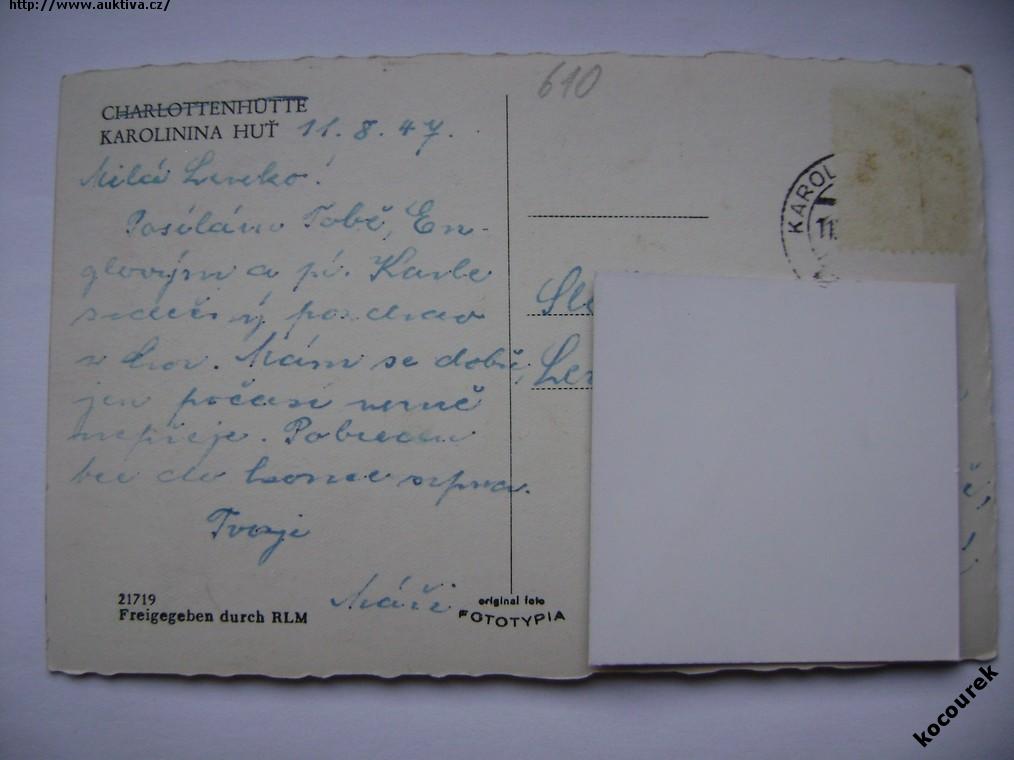 http://www.auktiva.cz/
610
CHARLOTTENHÜTTE
KAROLININA HUŤ 11. 8. 47.
KAROL
11.
Milá Lenko!
Posílám Tobě, En-
glovým a pí. Karle
srdečný pozdrav
z hor. Mám se dobře,
jen počasí
nepřeje. Pobudu
zde do konce srpna.
Tvoje
Máňa
Sle
Len
21719
Freigegeben durch RLM
original foto
FOTOTYPIA
kocourek